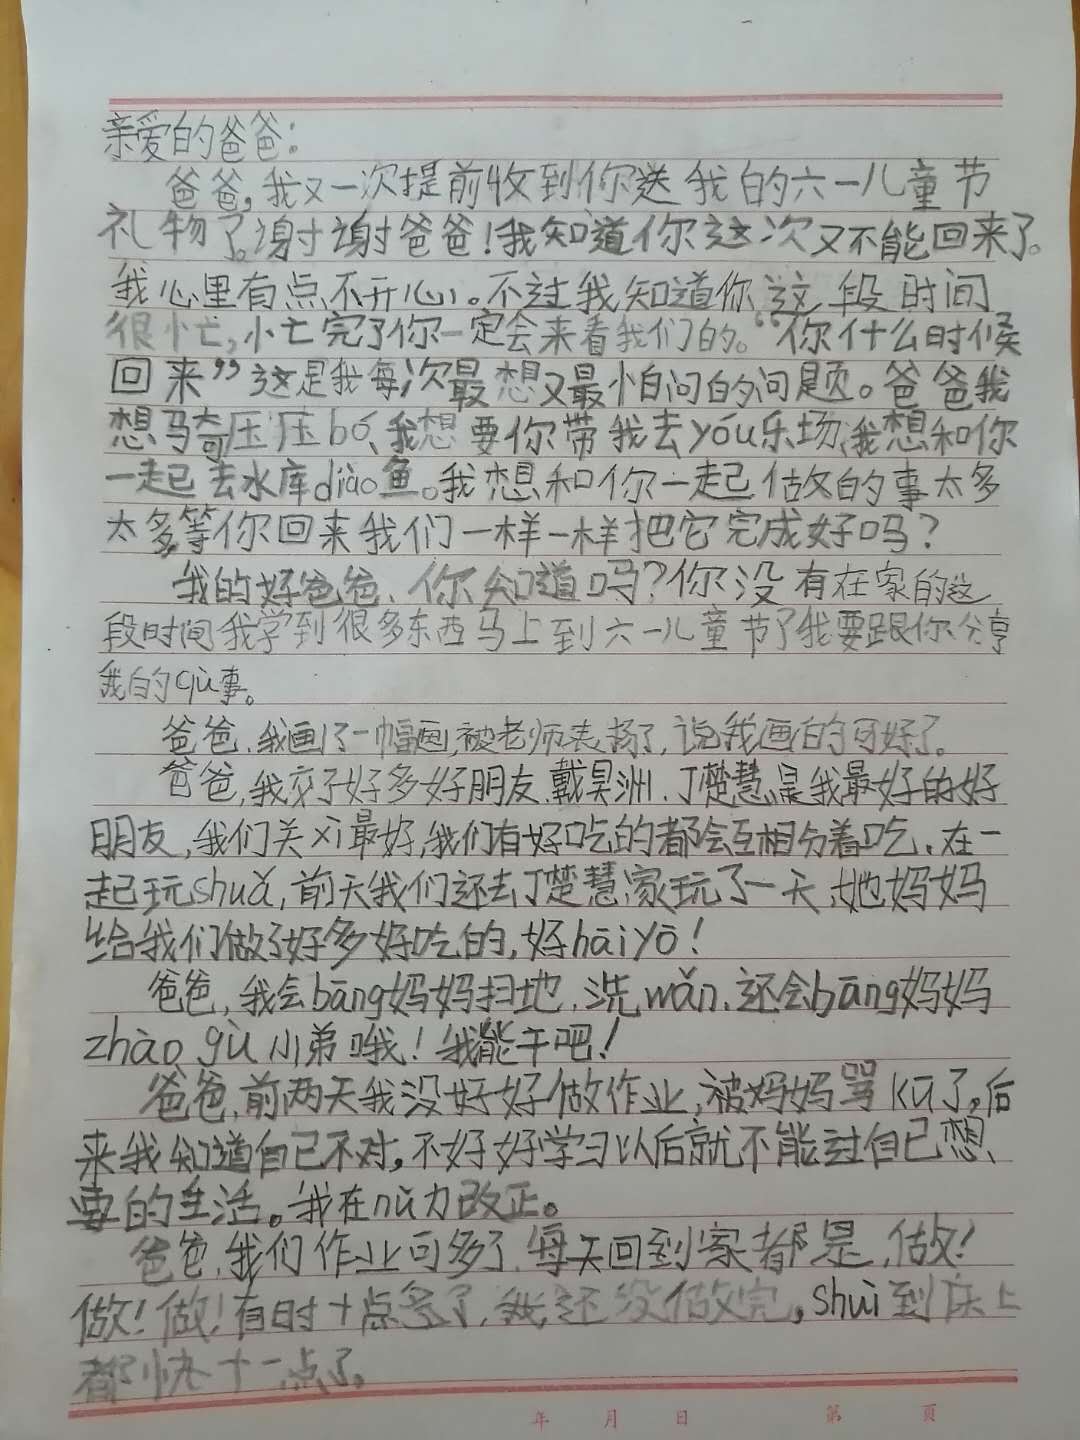 亲爱的爸爸：
爸爸，我又一次提前收到你送我的六一儿童节
礼物了。谢谢爸爸！我知道你这次又不能回来了。
我心里有点不开心。不过我知道你这段时间
很忙，忙完了你一定会来看我们的。“你什么时候
回来”这是我每次最想又最怕问的问题。爸爸我
想骑压压bó、我想要你带我去yóu乐场、我想和你
一起去水库diào鱼。我想和你一起做的事太多
太多，等你回来我们一样一样把它完成好吗？
我的好爸爸、你知道吗？你没有在家的这
段时间我学到很多东西马上到六一儿童节了我要跟你分享
我的qù事。
爸爸、我画了一幅画，被老师表扬了，说我画的可好了。
爸爸，我交了好多好朋友、戴昊洲、丁楚慧是我最好的好
朋友，我们关xi最好，我们有好吃的都会互相分着吃、在一
起玩shuǎ，前天我们还去丁楚慧家玩了一天，她妈妈
给我们做了好多好吃的，好hāiyō！
爸爸，我会bāng妈妈扫地、洗wǎn、还会bāng妈妈
zhào gù小弟哦！我能干吧！
爸爸，前两天我没好好做作业，被妈妈骂kū了。后
来我知道自己不对，不好好学习以后就不能过自己想
要的生活。我在nǔ力改正。
爸爸，我们作业可多了、每天回到家都是，做！
做！做！有时十点多了，我还没做完，shuì到床上
都快十一点了。
年 月 日 第 頁